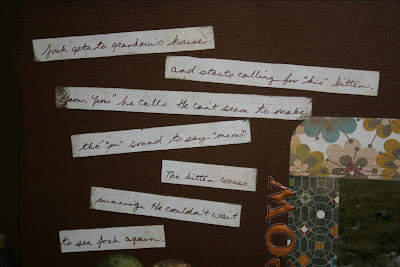 Josh gets to grandma's house
and starts calling for "his" kitten.
"Yeow, "yow" he calls. He can't seem to make
the "m" sound to say "meow".
The kitten comes
running. He couldn't wait
to see Josh again.
WOW